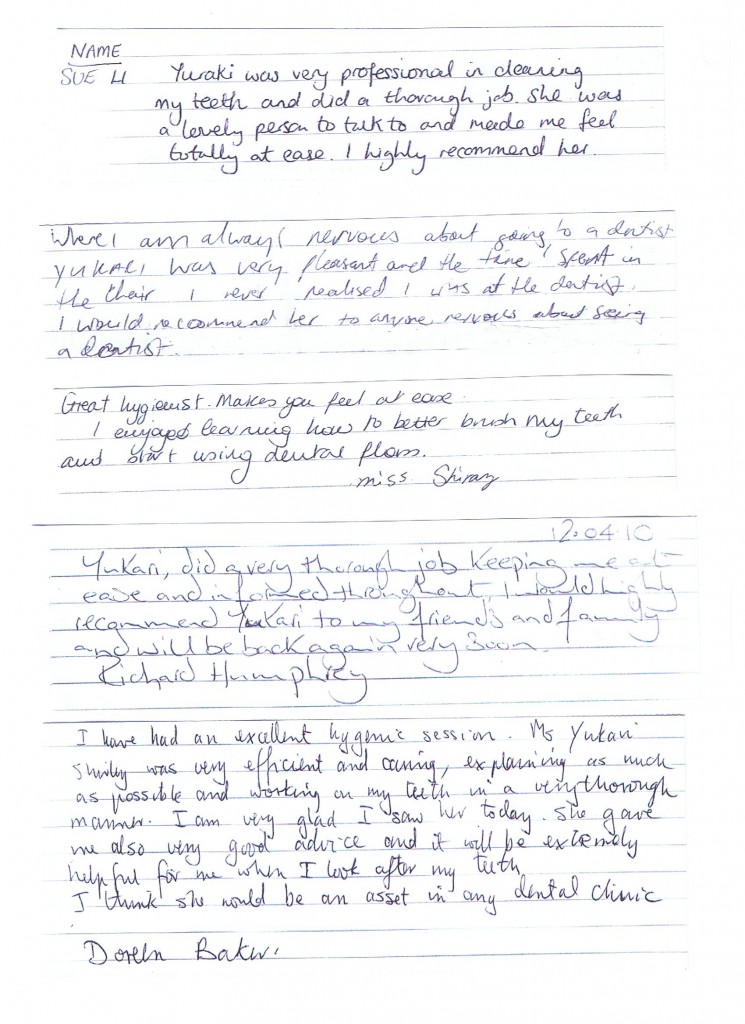 NAME
SUE H Yuraki was very professional in cleaning
my teeth and did a thorough job. She was
a lovely person to talk to and made me feel
totally at ease. I highly recommend her.
Where I am always nervous about going to a dentist
YUKARI was very pleasant and the time I spent in
the chair I never realised I was at the dentist.
I would recommend her to anyone nervous about seeing
a dentist.
Great hygienist. Makes you feel at ease.
I enjoyed learning how to better brush my teeth
and start using dental floss.
miss Shiraz
12.04.10
Yukari, did a very thorough job keeping me at
ease and informed throughout, I would highly
recommend Yukari to my friends and family
and will be back again very soon.
Richard Humphrey
I have had an excellent hygenic session. Ms Yukari
Shirley was very efficient and caring, explaining as much
as possible and working on my teeth in a very thorough
manner. I am very glad I saw her today. She gave
me also very good advice and it will be extremely
helpful for me when I look after my teeth
I think she would be an asset in any dental clinic
Doreen Baker.